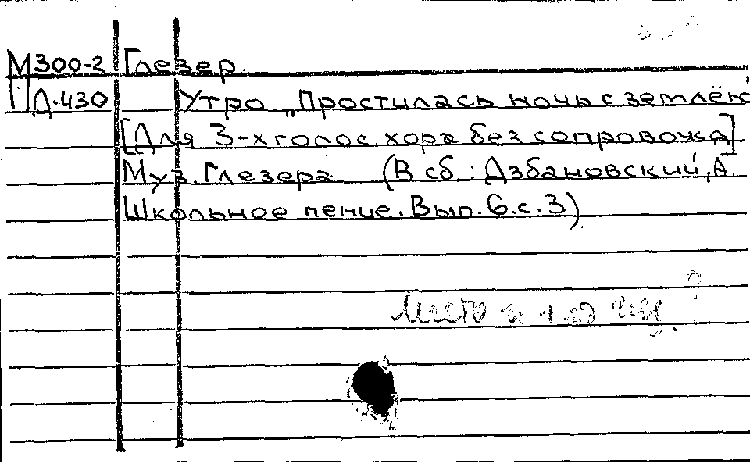 М300-2 Глезер
Д-430 Утро „Простилась ночь с землёю"
[Для 3-х голос. хора без сопровожд]
Муз. Глезера (В сб: Дзбановский, А
Школьное пение. Вып. 6. с. 3)